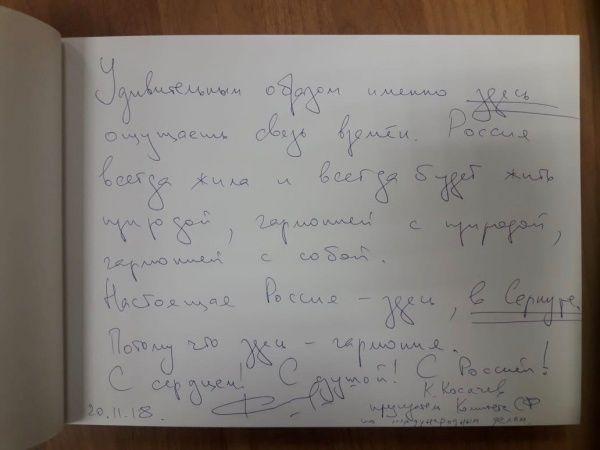 Удивительным образом именно здесь
ощущаешь связь времён. Россия
всегда жила и всегда будет жить
природой, гармонией с природой,
гармонией с собой.
Настоящая Россия – здесь, в Сернуре.
Потому что здесь – гармония.
С сердцем! С душой! С Россией!
К. Косачев
20.11.18.
председатель Комитета СФ
по международным делам